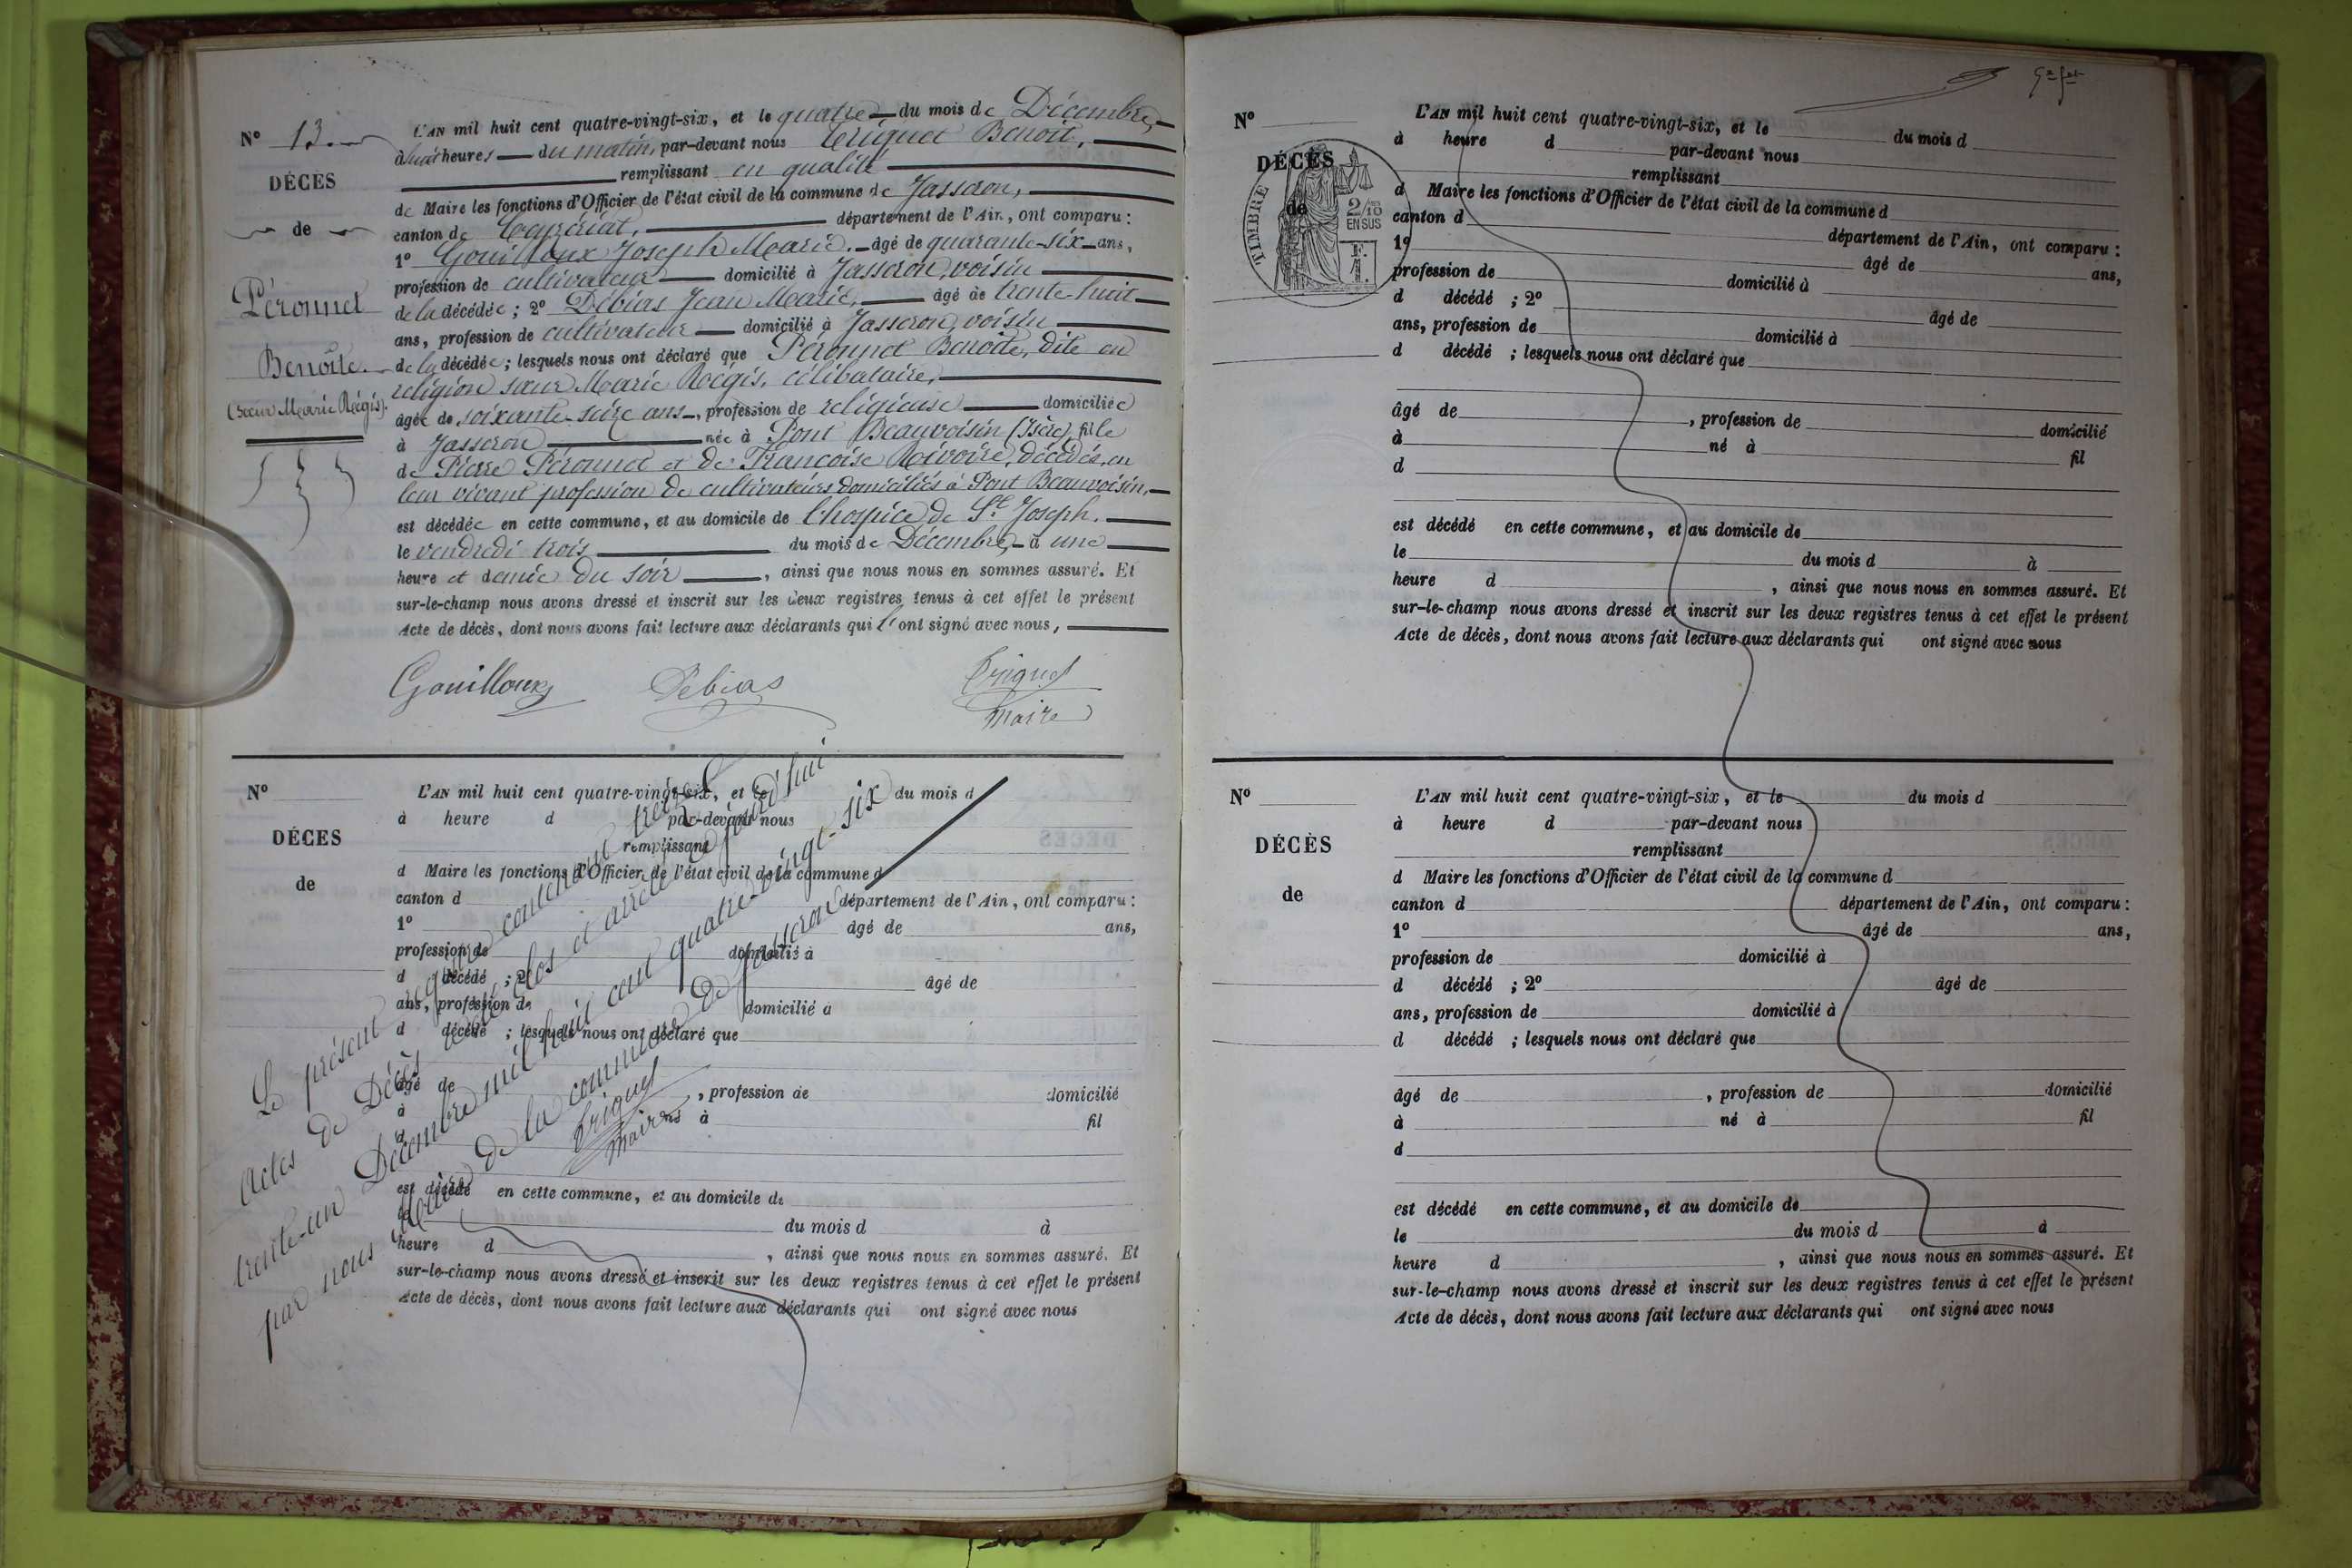 N° 13.
DÉCÈS
de
Péronnet
Benoîte.
(Sœur Marie Régis).
L'AN mil huit cent quatre-vingt-six, et le quatre du mois de Décembre,
à huit heures du matin, par-devant nous Briquet Benoit,
remplissant en qualité
de Maire les fonctions d'Officier de l'état civil de la commune de Jasseron,
canton de Ceyzériat, département de l'Ain, ont comparu :
1° Gouilloux Joseph Marie. âgé de quarante-six ans,
profession de cultivateur domicilié à Jasseron, voisin
de la décédée ; 2° Débias Jean Marie, âgé de trente-huit
ans, profession de cultivateur domicilié à Jasseron, voisin
de la décédée ; lesquels nous ont déclaré que Péronnet Benoîte, dite en
religion sœur Marie Régis, célibataire,
âgée de soixante-seize ans, profession de religieuse domiciliée
à Jasseron née à Pont Beauvoisin (Isère), fille
de Pierre Péronnet et de Françoise Rivoire, décédés, en
leur vivant profession de cultivateurs domiciliés à Pont Beauvoisin,
est décédée en cette commune, et au domicile de l'hospice de St Joseph.
le vendredi trois du mois de Décembre, à une
heure et demie du soir, ainsi que nous nous en sommes assuré. Et
sur-le-champ nous avons dressé et inscrit sur les deux registres tenus à cet effet le présent
Acte de décès, dont nous avons fait lecture aux déclarants qui l'ont signé avec nous,
Gouilloux Debias Briquet
maire
N°
DÉCES
de
L'AN mil huit cent quatre-vingt-six, et le du mois d
à heure d par-devant nous
remplissant
d Maire les fonctions d'Officier de l'état civil de la commune d
canton d département de l'Ain, ont comparu :
1° âgé de ans,
profession de domicilié à
d décédé ; 2° âgé de
ans, profession de domicilié à
d décédé ; lesquels nous ont déclaré que
âgé de , profession de domicilié
à né à fil
d
est décédé en cette commune, et au domicile de
le du mois d à
heure d , ainsi que nous nous en sommes assuré. Et
sur-le-champ nous avons dressé et inscrit sur les deux registres tenus à cet effet le présent
Acte de décès, dont nous avons fait lecture aux déclarants qui ont signé avec nous
Le présent registre contenant treize
actes de Décès a été clos et arrêté aujourd'hui
trente-un Décembre mil huit cent quatre-vingt-six
par nous Maire de la commune de Jasseron
Briquet
Maire
N°
DÉCÈS
de
TIMBRE
2/10
EN SUS
F.
1.
L'AN mil huit cent quatre-vingt-six, et le du mois d
à heure d par-devant nous
remplissant
d Maire les fonctions d'Officier de l'état civil de la commune d
canton d département de l'Ain, ont comparu :
1° âgé de ans,
profession de domicilié à
d décédé ; 2° âgé de
ans, profession de domicilié à
d décédé ; lesquels nous ont déclaré que
âgé de , profession de domicilié
à né à fil
d
est décédé en cette commune, et au domicile de
le du mois d à
heure d , ainsi que nous nous en sommes assuré. Et
sur-le-champ nous avons dressé et inscrit sur les deux registres tenus à cet effet le présent
Acte de décès, dont nous avons fait lecture aux déclarants qui ont signé avec nous
N°
DÉCÈS
de
L'AN mil huit cent quatre-vingt-six, et le du mois d
à heure d par-devant nous
remplissant
d Maire les fonctions d'Officier de l'état civil de la commune d
canton d département de l'Ain, ont comparu :
1° âgé de ans,
profession de domicilié à
d décédé ; 2° âgé de
ans, profession de domicilié à
d décédé ; lesquels nous ont déclaré que
âgé de , profession de domicilié
à né à fil
d
est décédé en cette commune, et au domicile de
le du mois d à
heure d , ainsi que nous nous en sommes assuré. Et
sur-le-champ nous avons dressé et inscrit sur les deux registres tenus à cet effet le présent
Acte de décès, dont nous avons fait lecture aux déclarants qui ont signé avec nous